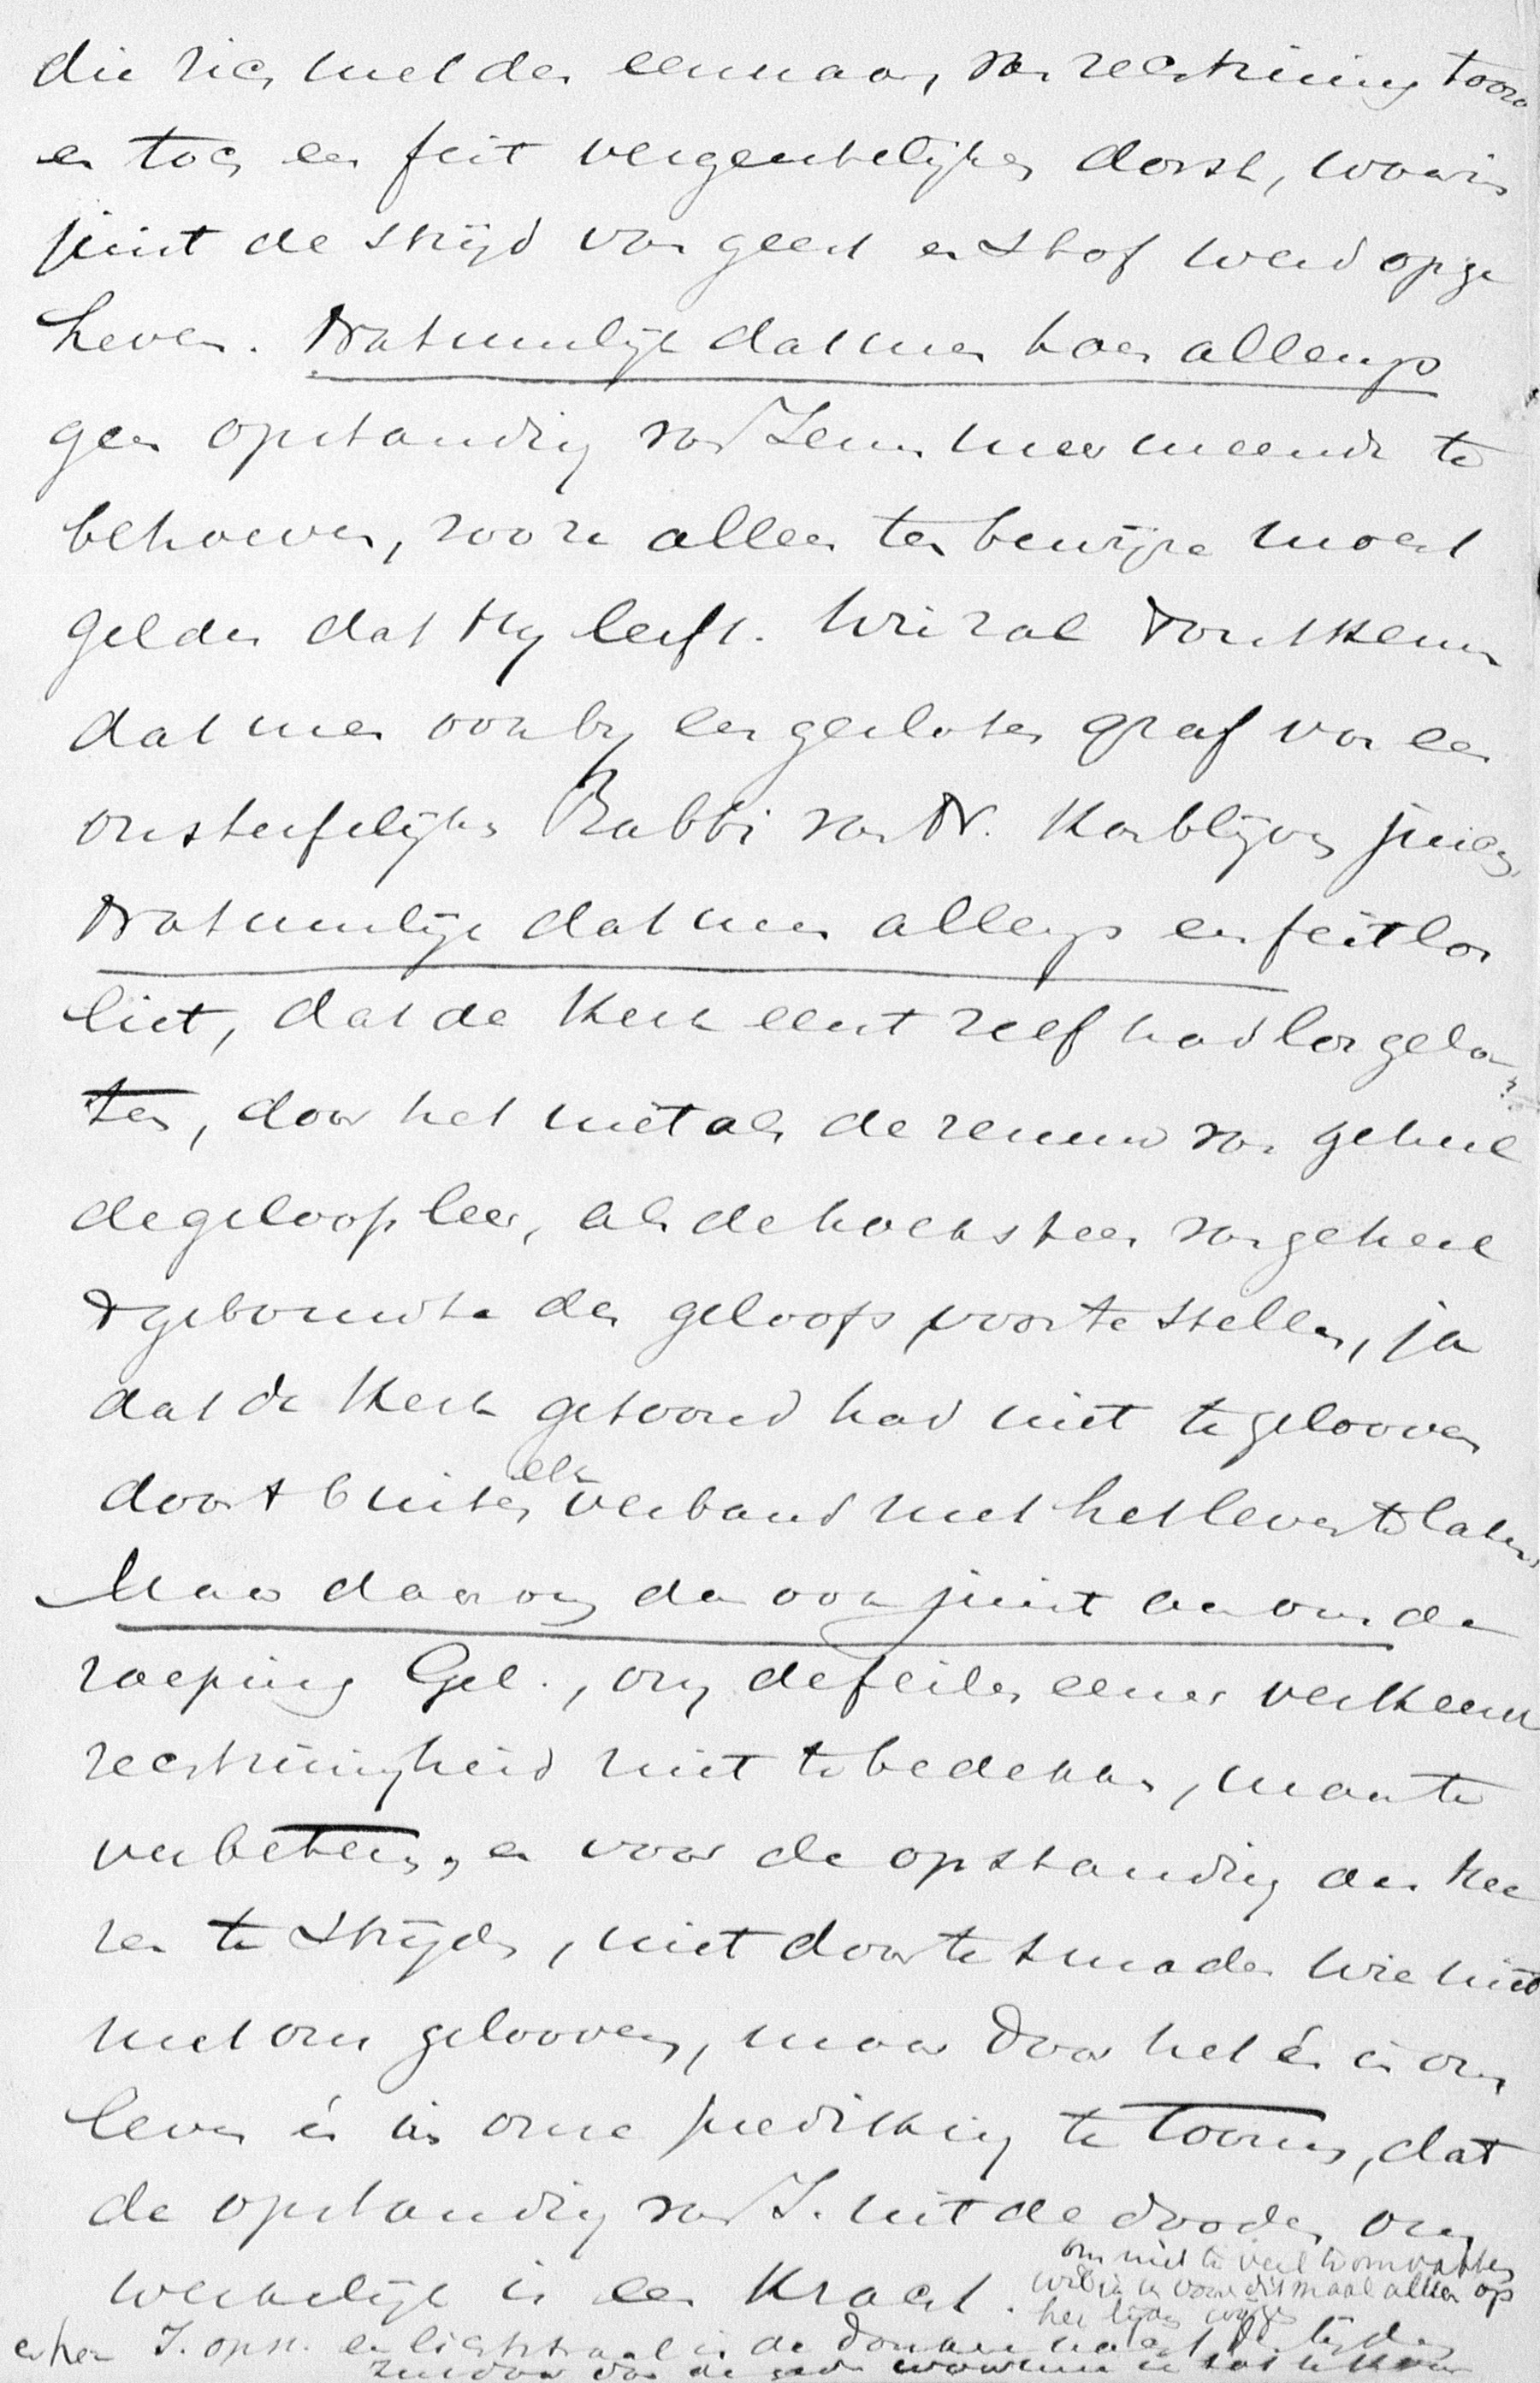 die zich met den eernaam van rechtzinnig tooit
en toch een feit vergeestelijken dorst, waarin
juist de strijd van geest en stof werd opge
heven. Natuurlijk dat men toen allengs
geen opstanding van Jezus meer meende te
behoeven, zoo ze alleen ten bewijze moest
gelden dat Hij leeft. Wie zal 't ontkennen
dat men ook bij een gesloten graf van een
onsterfelijken Rabbi van N. kon blijven
Natuurlijk dat men allengs een feit los
liet, dat de Kerk eerst zelf had losgela
ten, door het niet als de zenuw van geheel
de geloofsleer, als de hoeksteen van geheel
't gebouwte des geloofs voor te stellen, ja
dat de Kerk getoond had niet te gelooven
door 't buiten elk verband met het leven te laten
Maar daarom dan ook juist aan ons de
roeping Gel., om de feilen eener verkeerde
rechtzinnigheid niet te bedekken, maar te
verbeteren, en voor de opstanding des Hee
ren te strijden, niet door te smaden wie niet
met ons gelooven, maar door het én in ons
leven én in onze prediking te toonen, dat
de opstanding van J. uit de dooden ons
werkelijk is een Kracht.
om niet te veel te omvatten
wil ik u voor ditmaal alleen op
het lijden wijzen
J. opst. een lichtstraal in de donkere nacht des lijdens